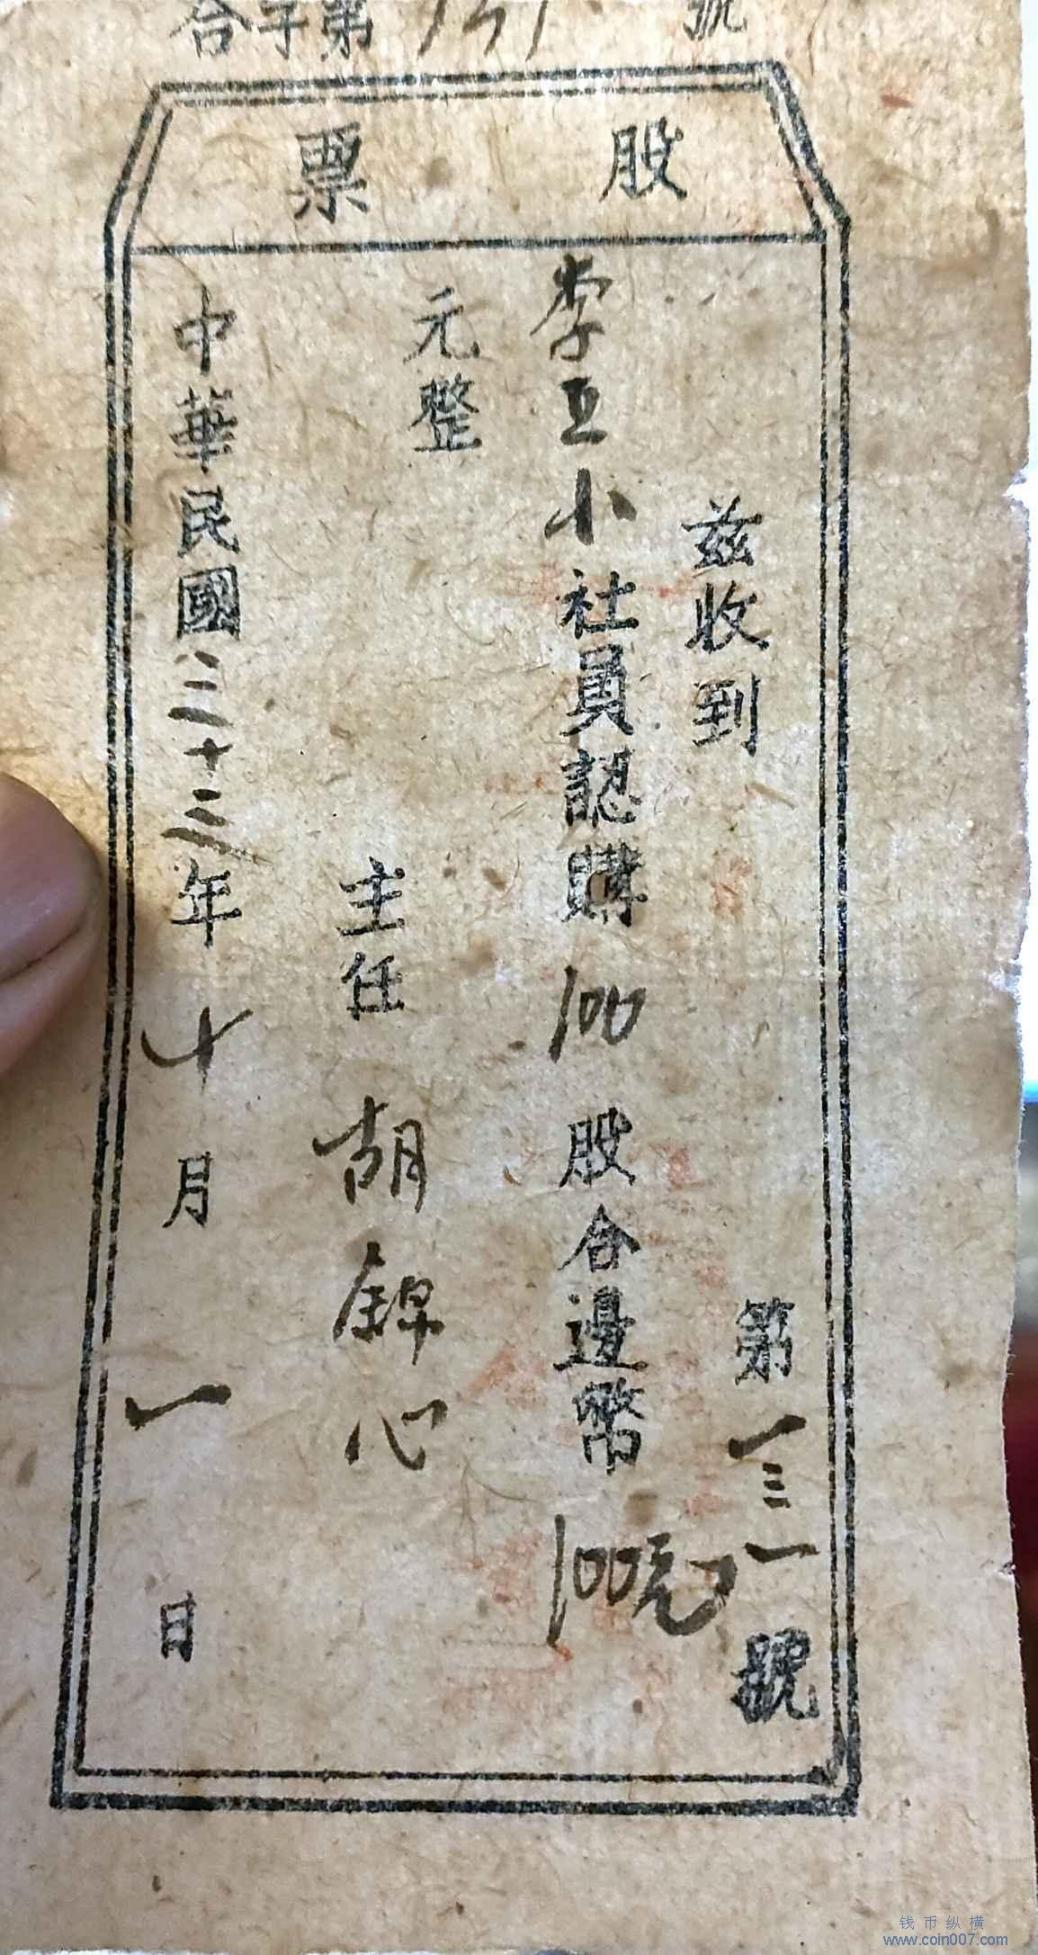 合字第131號
股票
茲收到
第一三一號
李五小社員認購100股合邊幣100元
元整
主任 胡錦心
中華民國三十三年十月一日
钱币纵横
www.coin007.com